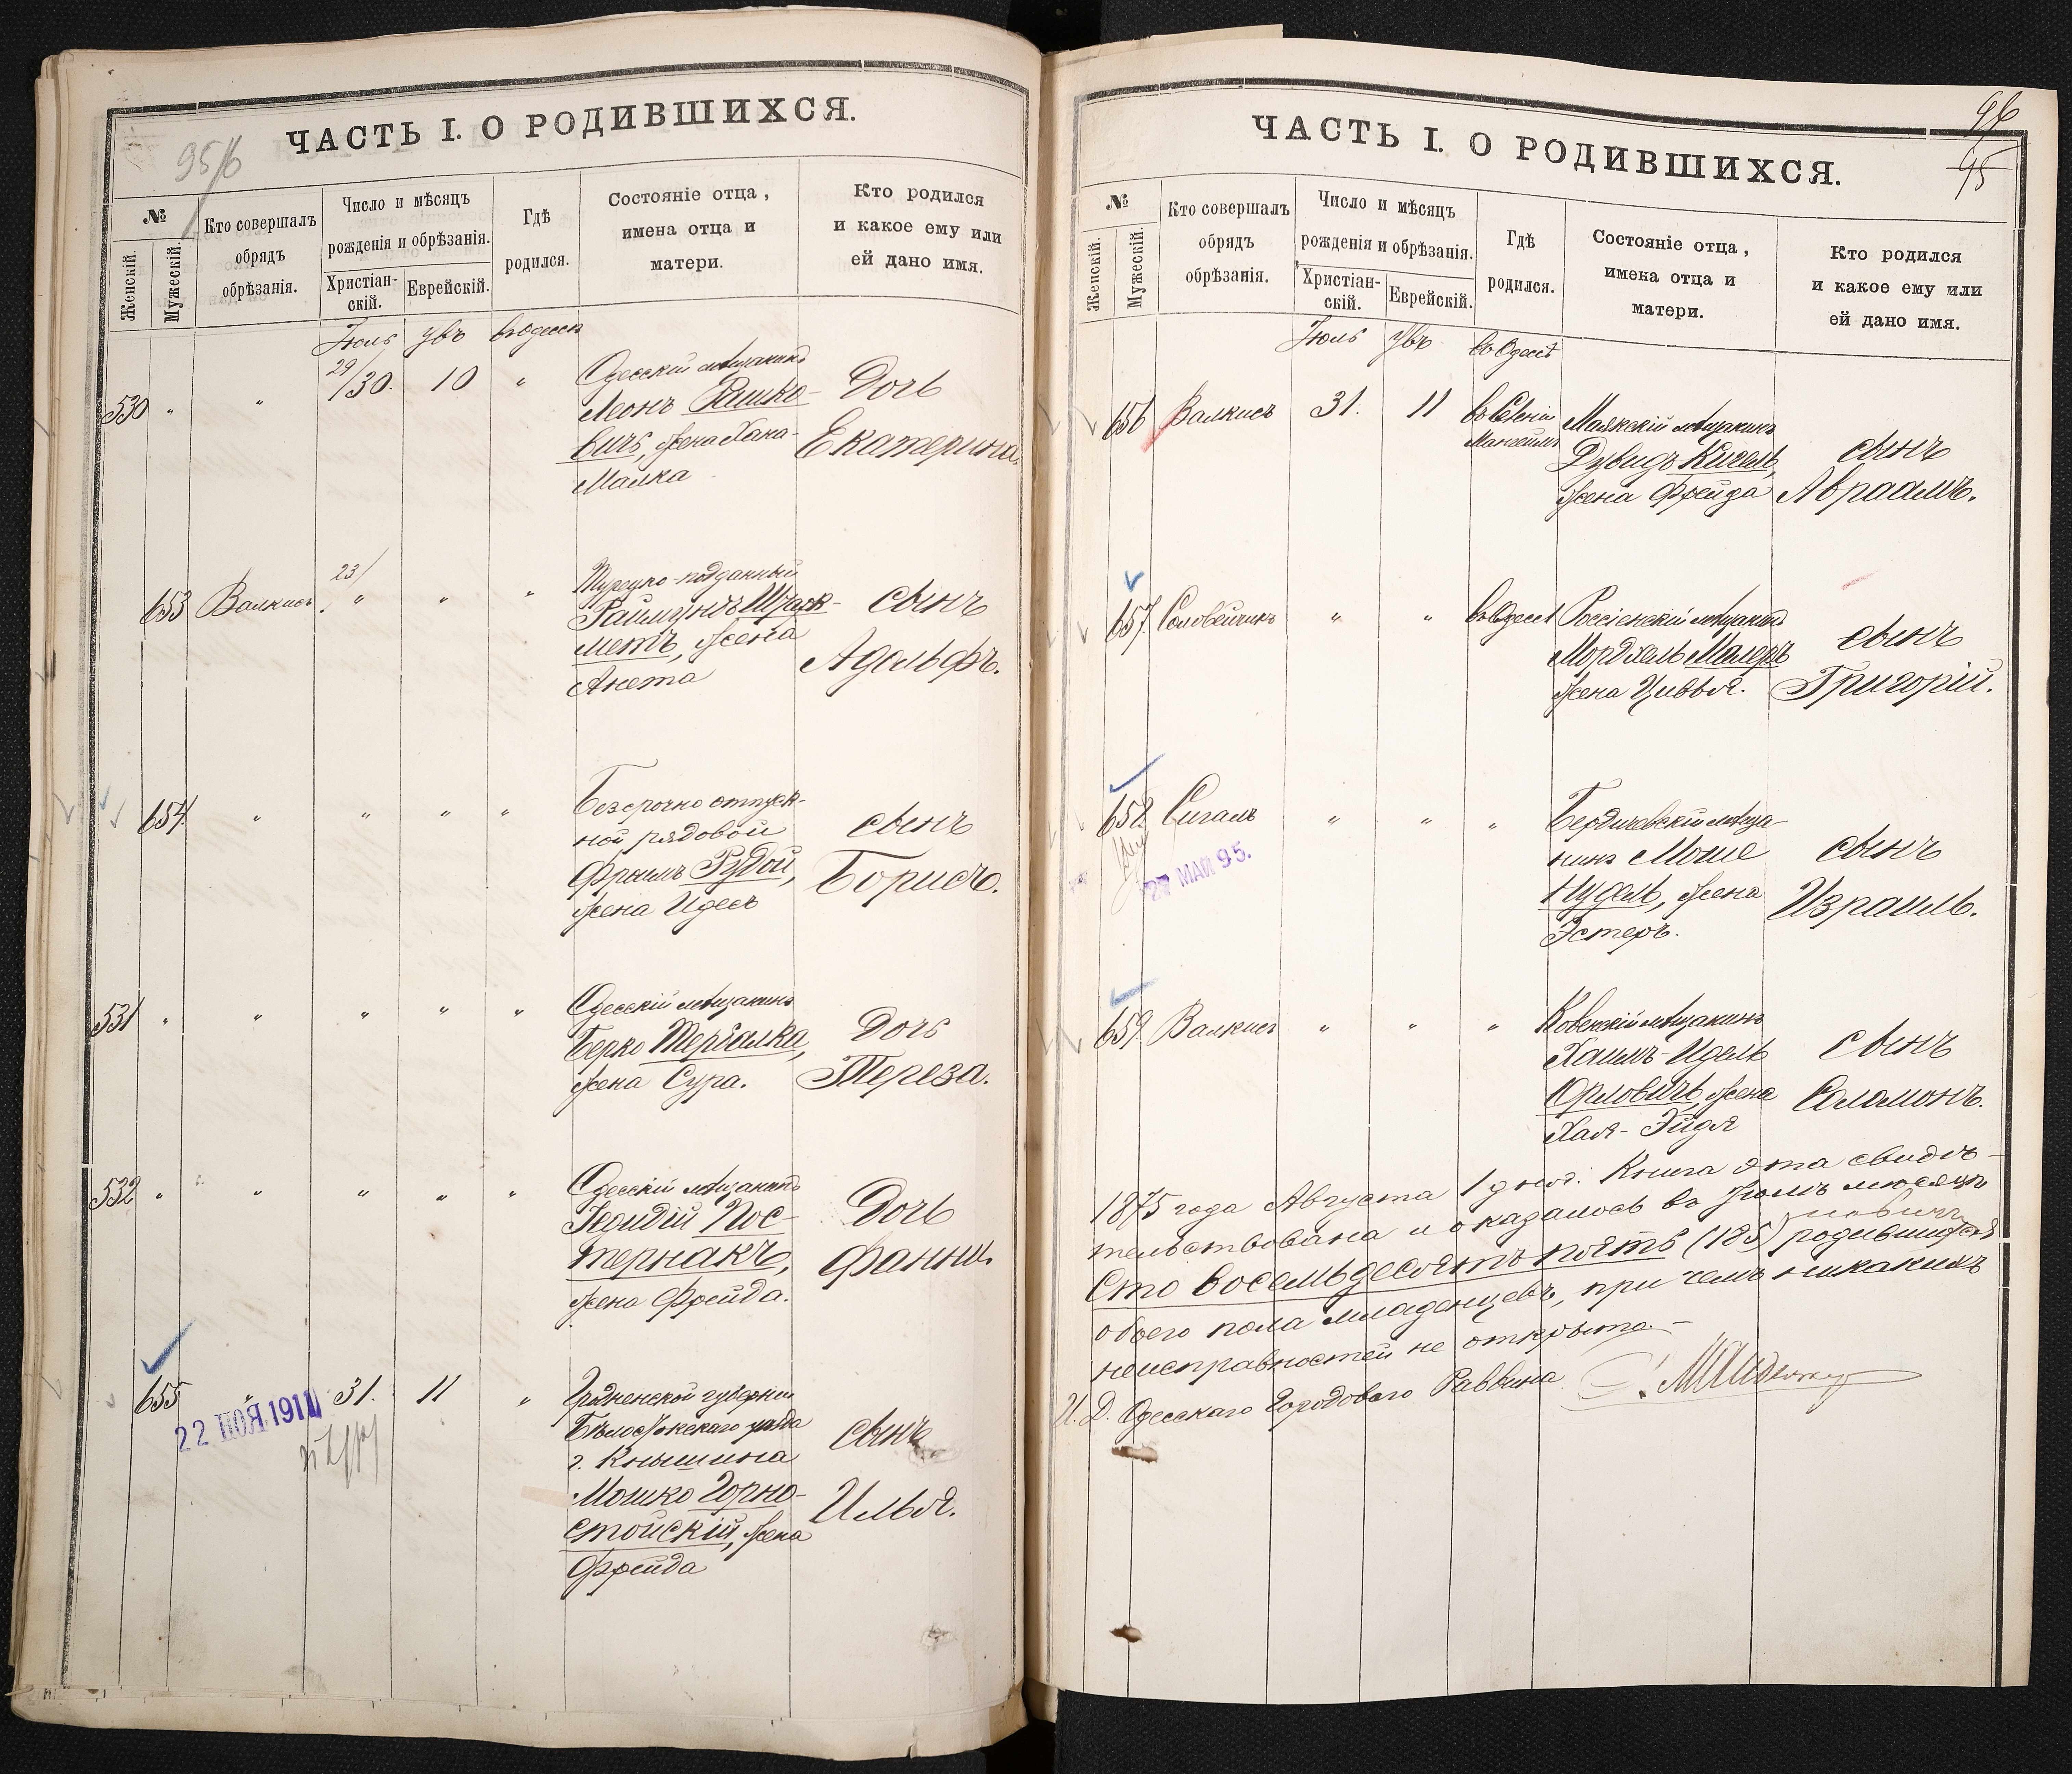 ЧАСТЬ I. О РОДИВШИХСЯ.
95/6
№
Женскій.
Мужескій.
Кто совершалъ
обрядъ
обрѣзанія.
Число и мѣсяцъ
рожденія и обрѣзанія.
Христіан-
скій.
Еврейскій.
Гдѣ
родился.
Состояніе отца,
имена отца и
матери.
Кто родился
и какое ему или
ей дано имя.
Іюль
въ Одессѣ
530 " " 29/30. 10 "
Одесскій мѣщанинъ
Леонъ Рашко-
вичъ, жена Хана-
Малка
Дочь
Екатерина.
653 Валкисъ 23/ " " "
Турецко-подданный
Раймундъ
метъ, жена
Анета
сынъ
Адольфъ.
654 " " " "
Безсрочно отпуск-
ной рядовой
Фроимъ Рудой,
жена Идесъ
сынъ
Борисъ.
531 " " " " "
Одесскій мѣщанинъ
Берко
жена Сура.
Дочь
Тереза.
532 " " " " "
Одесскій мѣщанинъ
Гедидій Пос-
тернакъ,
жена Фрейда.
Дочь
Фанни.
655 " 31. 11 "
22 НОЯ 1911
Гродненской губерніи
Бѣлостокскаго уѣзда
г. Кнышина
Мошко Горно-
стойскій, жена
Фрейда
сынъ
Илья.
ЧАСТЬ I. О РОДИВШИХСЯ.
96
95
№
Женскій.
Мужескій.
Кто совершалъ
обрядъ
обрѣзанія.
Число и мѣсяцъ
рожденія и обрѣзанія.
Христіан-
скій.
Еврейскій.
Гдѣ
родился.
Состояніе отца,
имена отца и
матери.
Кто родился
и какое ему или
ей дано имя.
Іюль
въ Одессѣ
656 Валкисъ 31. 11
Маякскій мѣщанинъ
Дувидъ Кигель,
жена Фрейда
сынъ
Авраамъ.
657. Соловейчикъ " " въ Одессѣ
Россіенскій мѣщанинъ
Мордхель Малеръ
жена Цивья.
сынъ
Григорій.
658. Сигалъ " " "
27 МАЙ 95.
Бердичевскій мѣща-
нинъ Моше
Нудель, жена
Эстеръ.
сынъ
Израиль.
659. Валкисъ " " "
Ковенскій мѣщанинъ
Хаимъ-Идель
Орловичъ, жена
Хая-Эйдя
сынъ
Соломонъ.
1875 года Августа 1 дня. Книга эта свидѣ-
тельствована и оказалось въ Іюлѣ мѣсяцѣ
Сто восемьдесятъ пять (185) родившихся
обоего пола младенцевъ, при чемъ никакихъ
неисправностей не открыто.—
И. Д. Одесскаго Городового Раввина